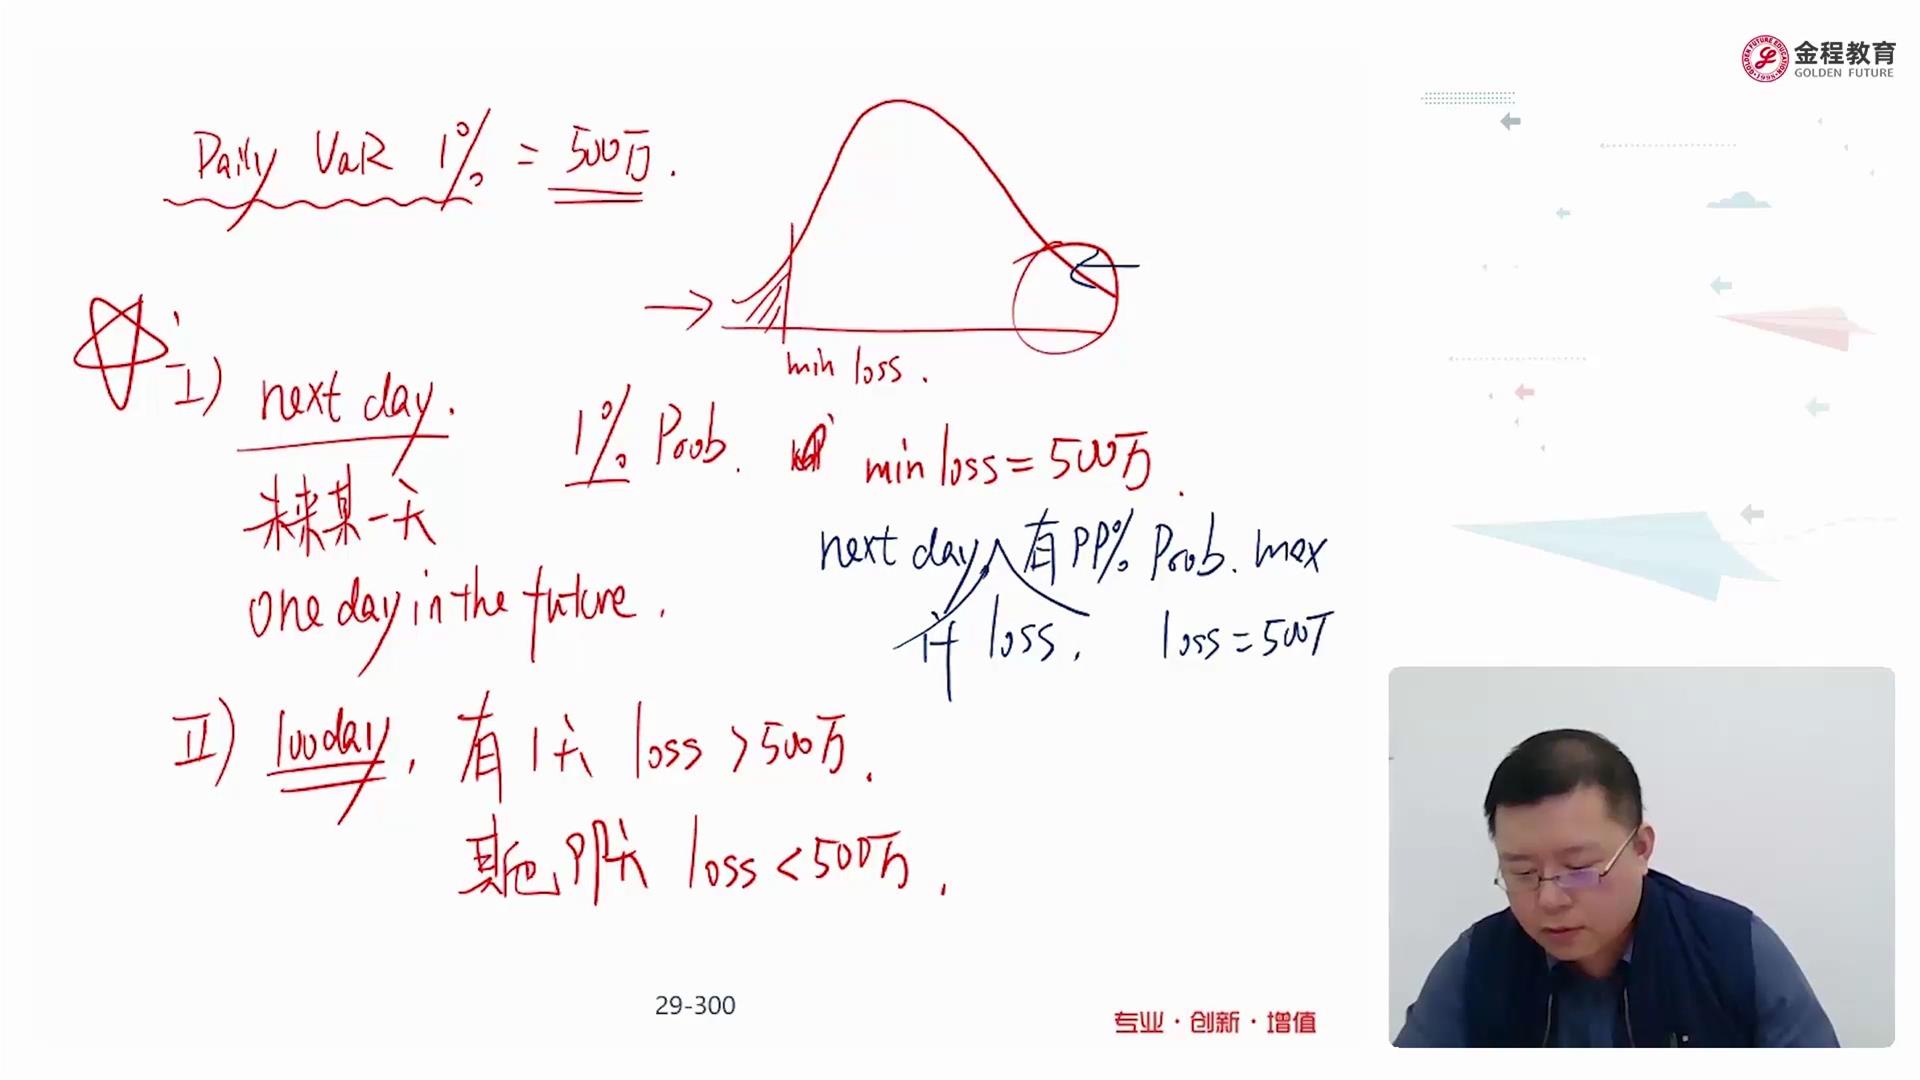 金程教育
GOLDEN FUTURE
GOLDEN FUTURE EDUCATION
1998
Daily VaR 1% = 500万.
min loss.
I) next day.
1% Prob. min loss = 500万.
未来某一天
next day 有99% Prob. max
one day in the future.
loss. loss = 500
II) 100day, 有1天 loss > 500万.
其他99天 loss < 500万.
29-300
专业·创新·增值